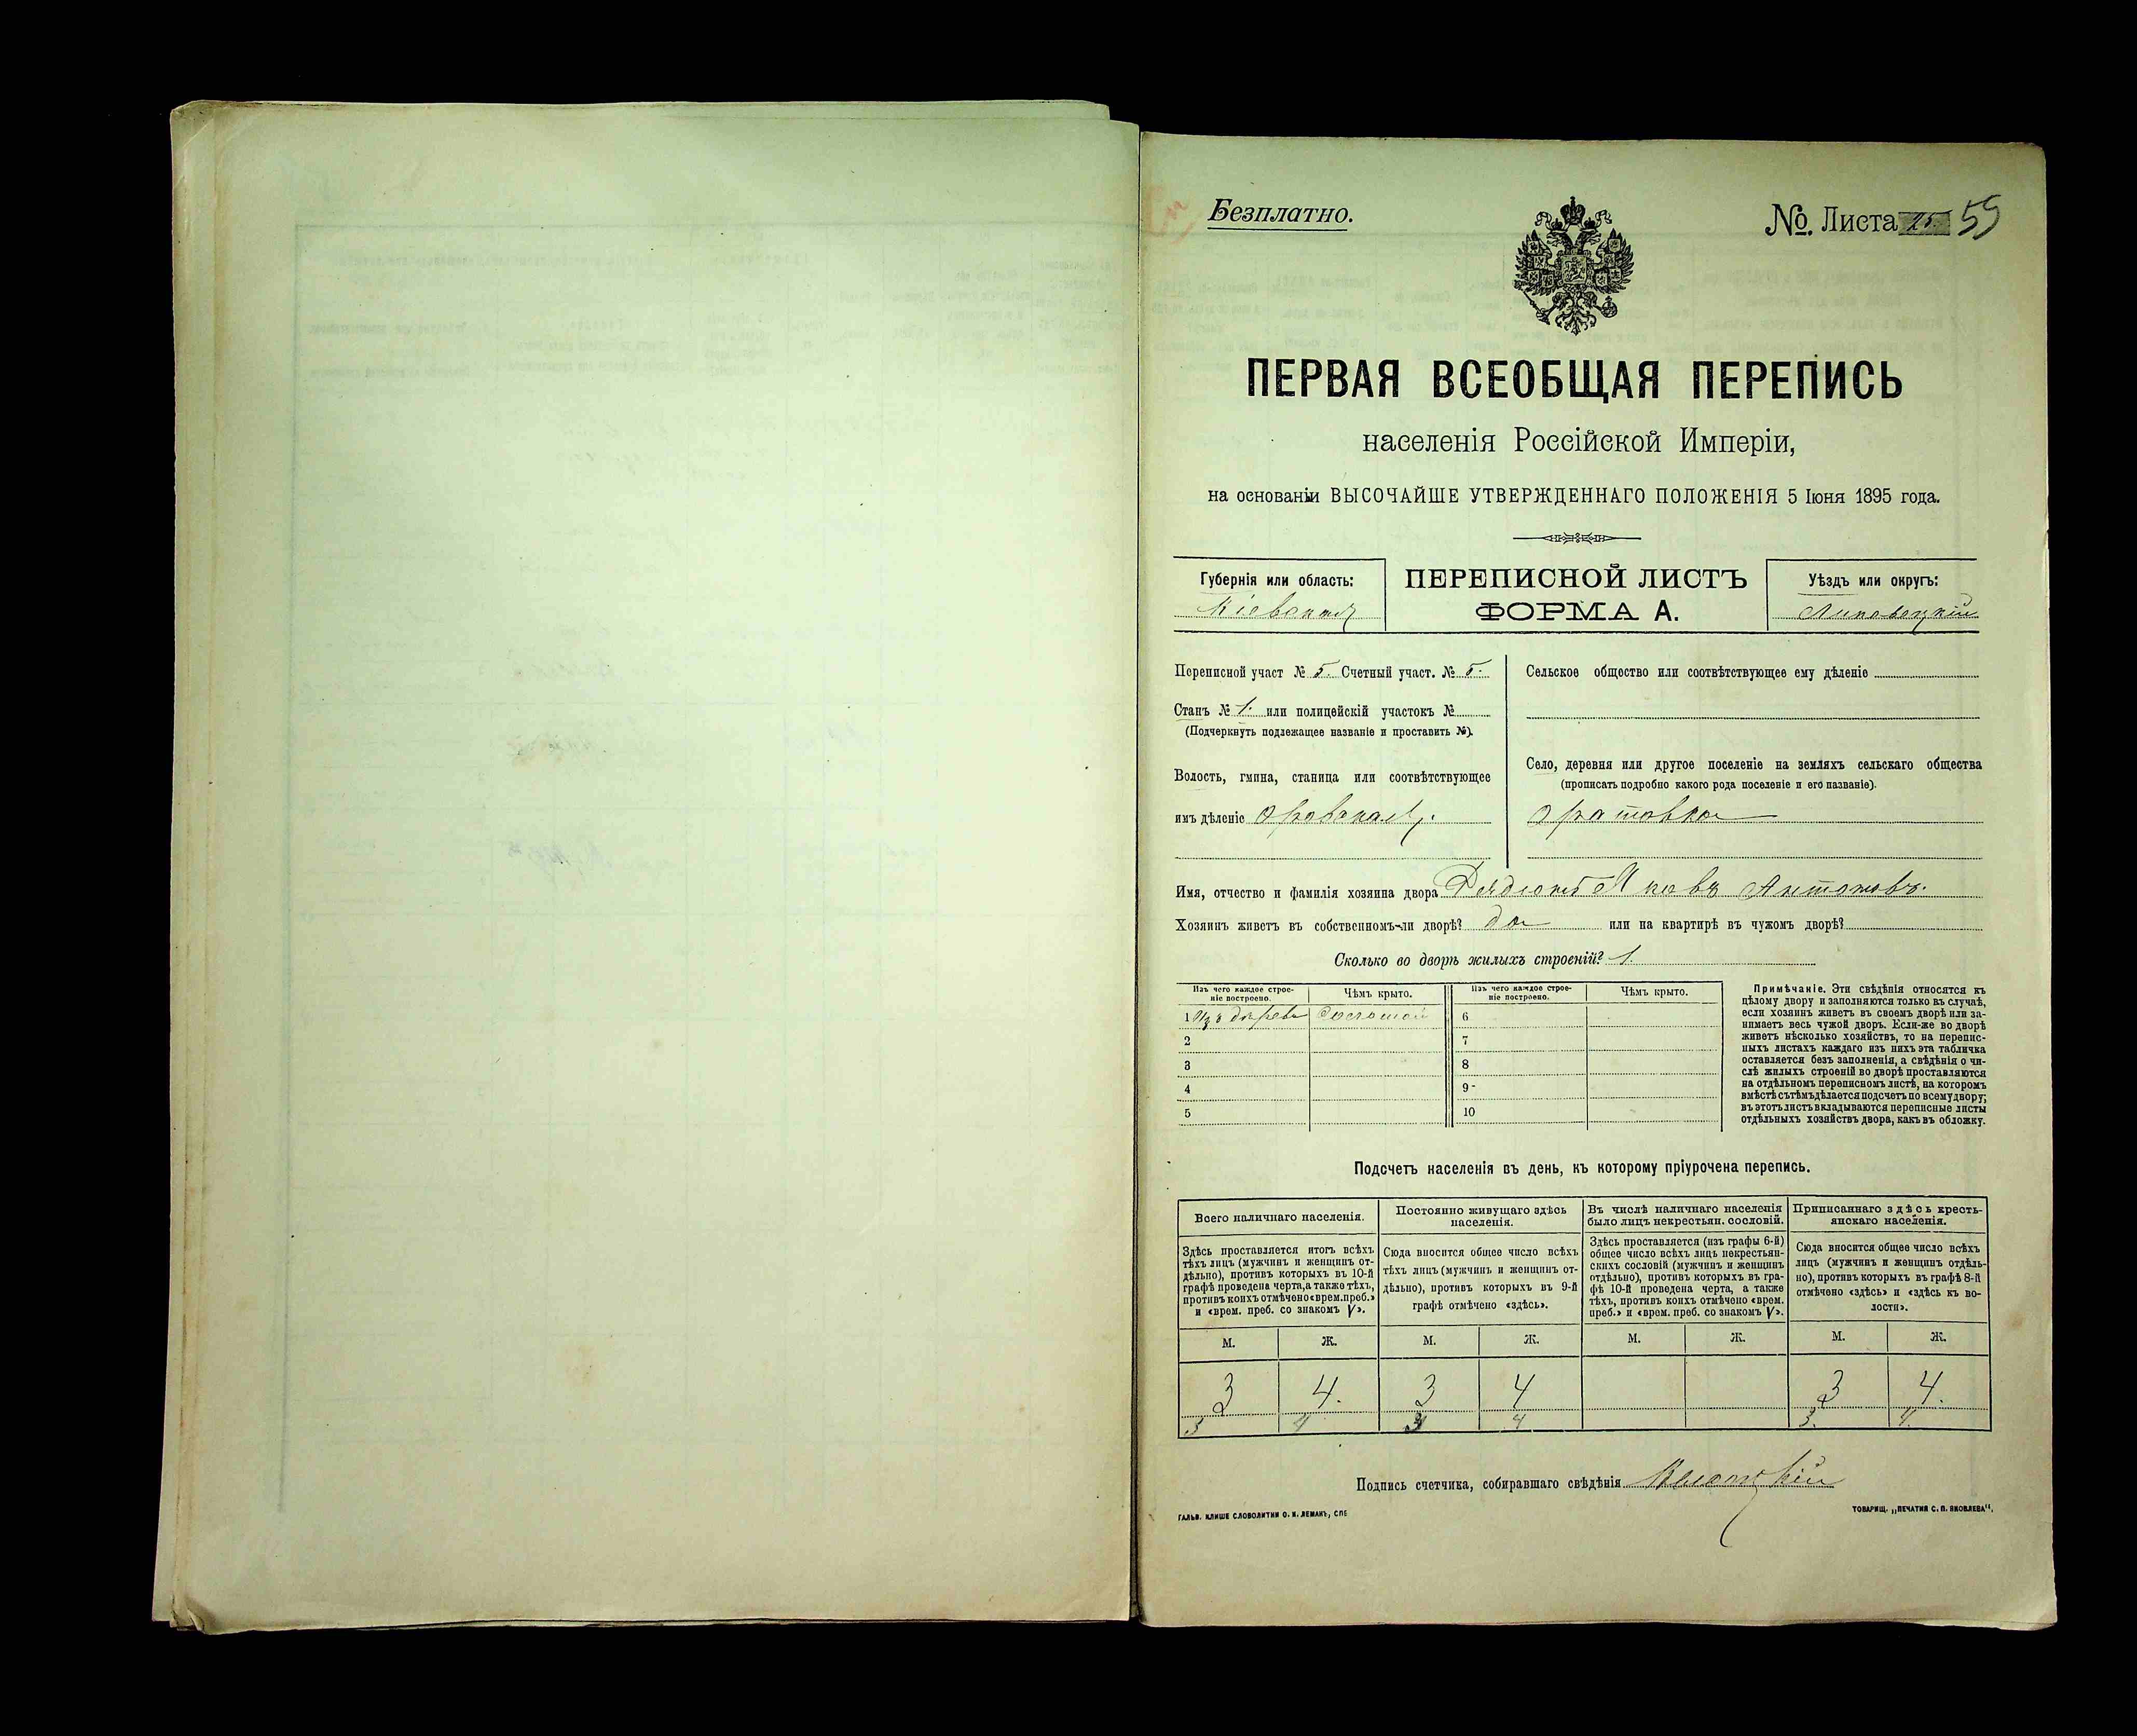 Безплатно.
№. Листа 25. 59
ПЕРВАЯ ВСЕОБЩАЯ ПЕРЕПИСЬ
населенія Россійской Имперіи,
на основаніи ВЫСОЧАЙШЕ УТВЕРЖДЕННАГО ПОЛОЖЕНІЯ 5 Іюня 1895 года.
Губернія или область:
Кіевская
ПЕРЕПИСНОЙ ЛИСТЪ
ФОРМА А.
Уѣздъ или округъ:
Липовецкій
Переписной участ № 5. Счетный участ. № 5.
Станъ № 1. или полицейскій участокъ №
(Подчеркнуть подлежащее названіе и проставить №).
Волость, гмина, станица или соотвѣтствующее
имъ дѣленіе
Сельское общество или соотвѣтствующее ему дѣленіе
Село, деревня или другое поселеніе на земляхъ сельскаго общества
(прописать подробно какого рода поселеніе и его названіе).
Оратовка
Имя, отчество и фамилія хозяина двора Яковъ Антоновъ.
Хозяинъ живетъ въ собственномъ-ли дворѣ? да или на квартирѣ въ чужомъ дворѣ?
Сколько во дворѣ жилыхъ строеній? 1.
Изъ чего каждое строе-
ніе построено.
Чѣмъ крыто.
1 Изъ дерева Соломой
2
3
4
5
Изъ чего каждое строе-
ніе построено.
Чѣмъ крыто.
6
7
8
9
10
Примѣчаніе. Эти свѣдѣнія относятся къ
цѣлому двору и заполняются только въ случаѣ,
если хозяинъ живетъ въ своемъ дворѣ или за-
нимаетъ весь чужой дворъ. Если-же во дворѣ
живетъ нѣсколько хозяйствъ, то на перепис-
ныхъ листахъ каждаго изъ нихъ эта табличка
оставляется безъ заполненія, а свѣдѣнія о чи-
слѣ жилыхъ строеній во дворѣ проставляются
на отдѣльномъ переписномъ листѣ, на которомъ
вмѣстѣ съ тѣмъ дѣлается подсчетъ по всему двору;
въ этотъ листъ вкладываются переписные листы
отдѣльныхъ хозяйствъ двора, какъ въ обложку.
Подсчетъ населенія въ день, къ которому пріурочена перепись.
Всего наличнаго населенія.
Здѣсь проставляется итогъ всѣхъ
тѣхъ лицъ (мужчинъ и женщинъ от-
дѣльно), противъ которыхъ въ 10-й
графѣ проведена черта, а также тѣхъ,
противъ коихъ отмѣчено «врем. преб.»
и «врем. преб. со знакомъ V».
Постоянно живущаго здѣсь
населенія.
Сюда вносится общее число всѣхъ
тѣхъ лицъ (мужчинъ и женщинъ от-
дѣльно), противъ которыхъ въ 9-й
графѣ отмѣчено «здѣсь».
Въ числѣ наличнаго населенія
было лицъ некрестьян. сословій.
Здѣсь проставляется (изъ графы 6-й)
общее число всѣхъ лицъ некрестьян-
скихъ сословій (мужчинъ и женщинъ
отдѣльно), противъ которыхъ въ гра-
фѣ 10-й проведена черта, а также
тѣхъ, противъ коихъ отмѣчено «врем.
преб.» и «врем. преб. со знакомъ V».
Приписаннаго здѣсь кресть-
янскаго населенія.
Сюда вносится общее число всѣхъ
лицъ (мужчинъ и женщинъ отдѣль-
но), противъ которыхъ въ графѣ 8-й
отмѣчено «здѣсь» и «здѣсь къ во-
лости».
М. Ж. М. Ж. М. Ж. М. Ж.
3 4. 3 4 3 4.
3 4 3 4 3. 4.
Подпись счетчика, собиравшаго свѣдѣнія
ГАЛЬВ. КЛИШЕ СЛОВОЛИТНИ О. И. ЛЕМАНЪ, СПБ
ТОВАРИЩ. „ПЕЧАТНЯ С. П. ЯКОВЛЕВА“.